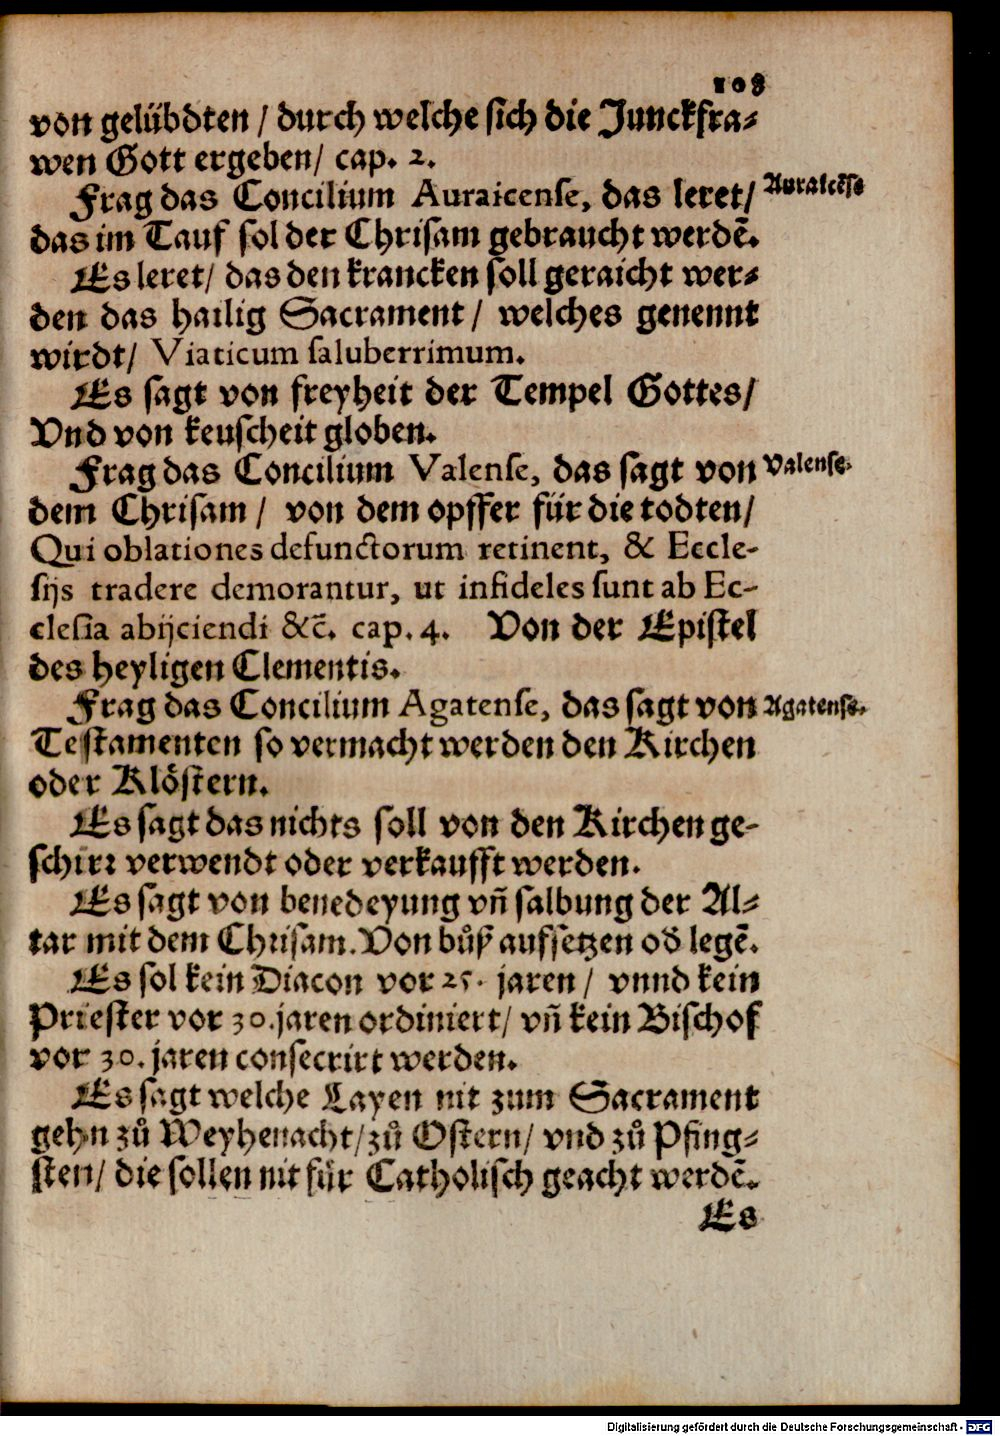 108
von gelübdten / durch welche sich die Junckfra-
wen Gott ergeben/ cap. 2.
Frag das Concilium Auraicense, das leret/ Auraicēse
das im Tauf sol der Chrisam gebraucht werdē.
Es leret/ das den krancken soll geraicht wer-
den das hailig Sacrament / welches genennt
wirdt/ Viaticum saluberrimum.
Es sagt von freyheit der Tempel Gottes/
Vnd von keuscheit globen.
Frag das Concilium Valense, das sagt von Valense.
dem Chrisam / von dem opffer für die todten/
Qui oblationes defunctorum retinent, & Eccle-
sijs tradere demorantur, ut infideles sunt ab Ec-
clesia abijciendi &c̄. cap. 4. Von der Epistel
des heyligen Clementis.
Frag das Concilium Agatense, das sagt von Agatense.
Testamenten so vermacht werden den Kirchen
oder Klöstern.
Es sagt das nichts soll von den Kirchen ge-
schirꝛ verwendt oder verkaufft werden.
Es sagt von benedeyung vn̄ salbung der Al-
tar mit dem Chrisam. Von bůß aufsetzen od̄ legē.
Es sol kein Diacon vor 25. jaren / vnnd kein
Priester vor 30. jaren ordiniert/ vn̄ kein Bischof
vor 30. jaren consecrirt werden.
Es sagt welche Layen nit zum Sacrament
gehn zů Weyhenacht/ zů Ostern/ vnd zů Pfing-
sten/ die sollen nit für Catholisch geacht werdē.
Es
Digitalisierung gefördert durch die Deutsche Forschungsgemeinschaft - DFG